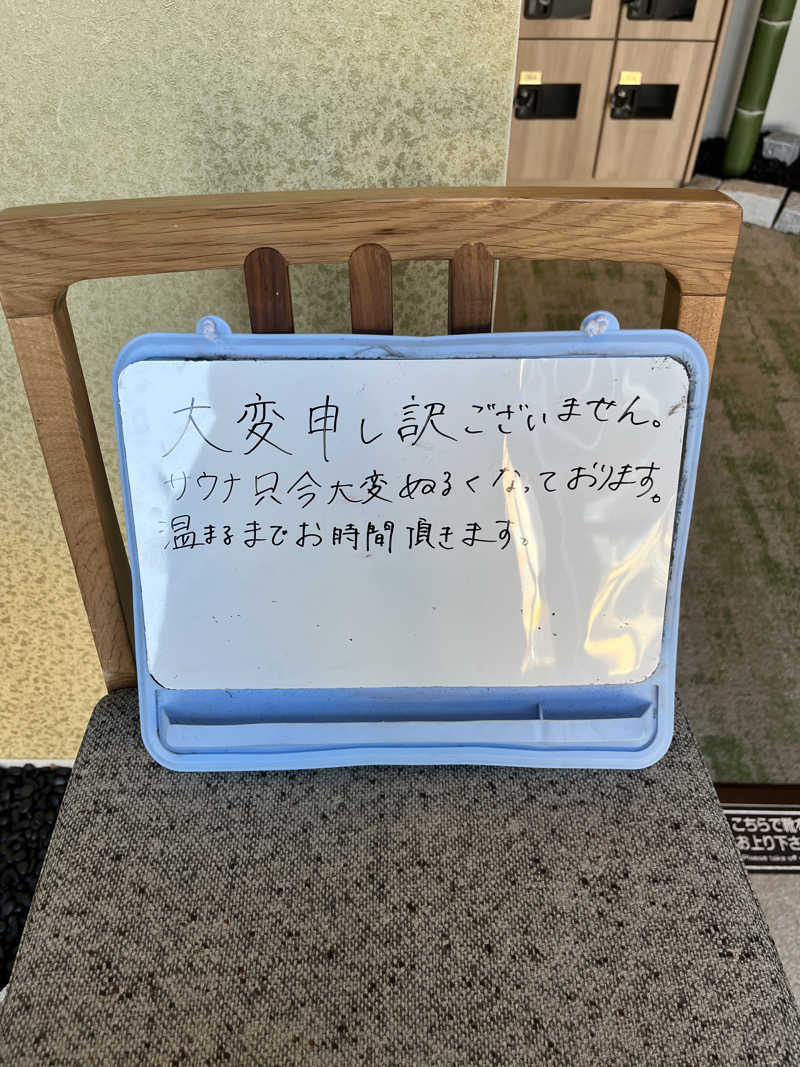 大変申し訳ございません。
サウナ只今大変ぬるくなっております。
温まるまでお時間頂きます。
こちらで靴
お上り下さ
Please take off